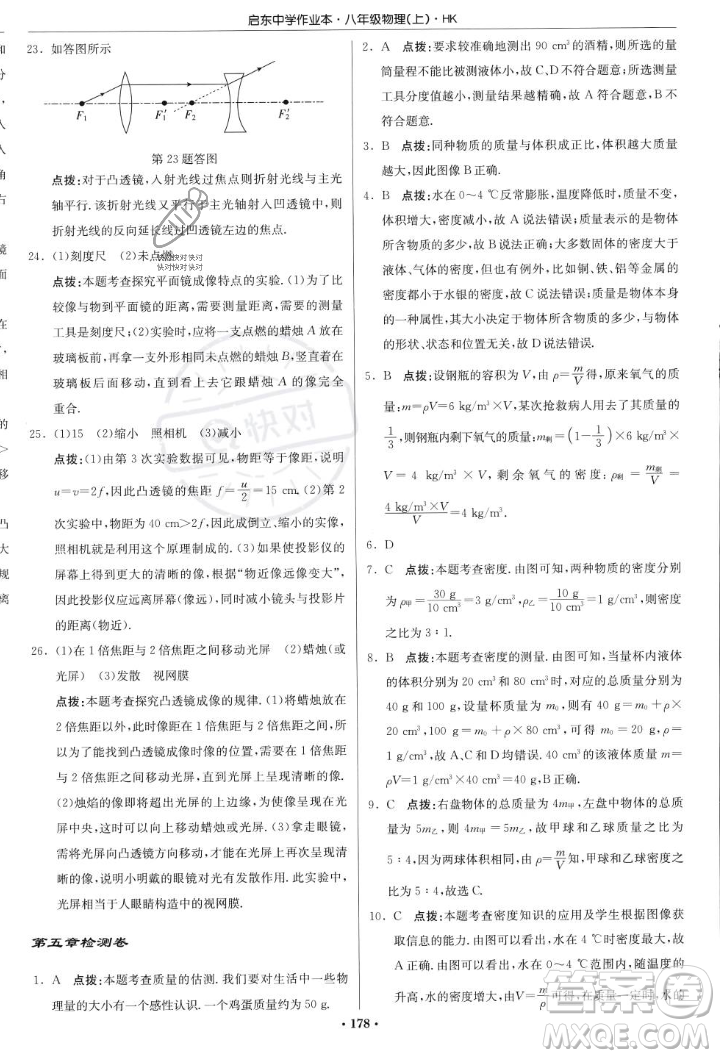 启东中学作业本·八年级物理(上)·HK
23. 如答图所示
F₁ F₁′ F₂ F₂′
第 23 题答图
点拨:对于凸透镜,入射光线过焦点则折射光线与主光
轴平行.该折射光线又平行于主光轴射入凹透镜,其折
射光线的反向延长线过凹透镜的焦点.
24. (1)刻度尺 (2)未点燃
点拨:本题考查探究平面镜成像特点的实验.(1)为了比
较像与物到平面镜的距离,需要测量距离,需要的测量
工具是刻度尺;(2)实验时,应将一支点燃的蜡烛 A 放在
玻璃板前,再拿一支大小相同未点燃的蜡烛 B 竖直在
玻璃板后面移动,直到看上去它跟蜡烛 A 的像完全
重合.
25. (1)15 (2)缩小 照相机 (3)减小
点拨:(1)由第 3 次实验数据可见,物距等于像距,则
u=v=2f,因此凸透镜的焦距 f=u/2=15 cm.(2)第 2
次实验中,物距为 40 cm>2f,因此成倒立、缩小的实像,
照相机正是依据这个原理制成的.(3)要使投影仪的
屏幕上得到更大的清晰的像,根据“物近像远像变大”,
因此投影仪应远离屏幕(像远),同时减小镜头与投影片
的距离(物近).
26. (1)在 1 倍焦距与 2 倍焦距之间移动光屏 (2)蜡烛(或
光屏) (3)发散 视网膜
点拨:本题考查探究凸透镜成像的规律.(1)将蜡烛放在 2
倍焦距以外,此时像距在 1 倍焦距与 2 倍焦距之间,所以
实验中在寻找凸透镜成像时像的位置,需要在 1 倍焦距与
2 倍焦距之间移动光屏,直到在光屏上看到清晰的像.
(2)烛焰的像成在光屏的上边缘,为了使像能成在光
屏中央,可以向上移动蜡烛或光屏.(3)拿走眼镜,
光屏需向凸透镜方向移动,才能在光屏上重新得到清晰
的像,这说明小明戴的眼镜对光有发散作用.此实验中,
光屏相当于人眼睛构造中的视网膜.
第五章检测卷
1. A 点拨:本题考查质量的估测.我们要对生活中一些物
理量的大小有一个感性认识.一个鸡蛋质量约为 50 g.
2. A 点拨:要求较准确地测出 90 cm³ 的酒精,则所选量
筒量程不能比被测液体小,故 C、D 不符合题意;所选测量
工具分度值越小,测量结果越准确,故 A 符合题意,B 不
符合题意.
3. B 点拨:同种物质的质量与体积成正比,体积越大质量
越大,因此图像 B 正确.
4. B 点拨:水在 0~4 ℃反常膨胀,温度降低,质量不变,
体积增大,密度减小,故 A 说法错误;质量是物体
所含物质的多少,不随形状改变,故 B 说法正确;
液体、气体的密度也可能比固体大,如铜、铁、铝等金属的
密度小于水银的密度,故 C 说法错误;密度是物质的特
性,其大小决定于物体所含物质的种类,故 D 说法
错误.
5. B 点拨:设钢瓶的容积为 V,由 ρ=m/V得,原来氧气的质
量:m=ρV=6 kg/m³×V,某次抢救病人用去了质量的
1/3,则钢瓶内剩下氧气的质量:m剩=(1−1/3)×6 kg/m³×
V = 4 kg/m³ × V,剩余氧气的密度:ρ剩=m剩/V=
4 kg/m³×V/V=4 kg/m³.
6. D
7. A 点拨:本题考查密度.由图可知,两种物质的密度分别
为 ρ甲=30 g/10 cm³=3 g/cm³,ρ乙=10 g/10 cm³=1 g/cm³,则密度之
比为 3∶1.
8. B 点拨:本题考查密度的测量.由图可知,当量杯内液体
的体积分别为 20 cm³ 和 80 cm³ 时,对应的总质量分别为
40 g 和 100 g,设量杯质量为 m₀,则有 40 g=m₀+ρ×
20 cm³,100 g=m₀+ρ×80 cm³,可得 m₀=20 g,ρ=
1 g/cm³,故 A、C、D 均错误;20 cm³ 的该液体质量 m=
ρV=1 g/cm³×20 cm³=20 g,故 B 正确.
9. C 点拨:右盘物体的总质量为 4m甲,左盘中物体的总质
量为 5m乙,则 4m甲=5m乙,故甲球和乙球质量之比为
5∶4,因为两球体积相同,则由 ρ=m/V知,甲球与乙球密度
之比为 5∶4.
10. C 点拨:本题考查密度知识的应用及学生根据图像获
取信息的能力.由图可以看出,水在 4 ℃时体积最小,
在 0~4 ℃范围内,水的体积随温度的
升高,体积变小,由 ρ=m/V可得,在质量一定时,
178